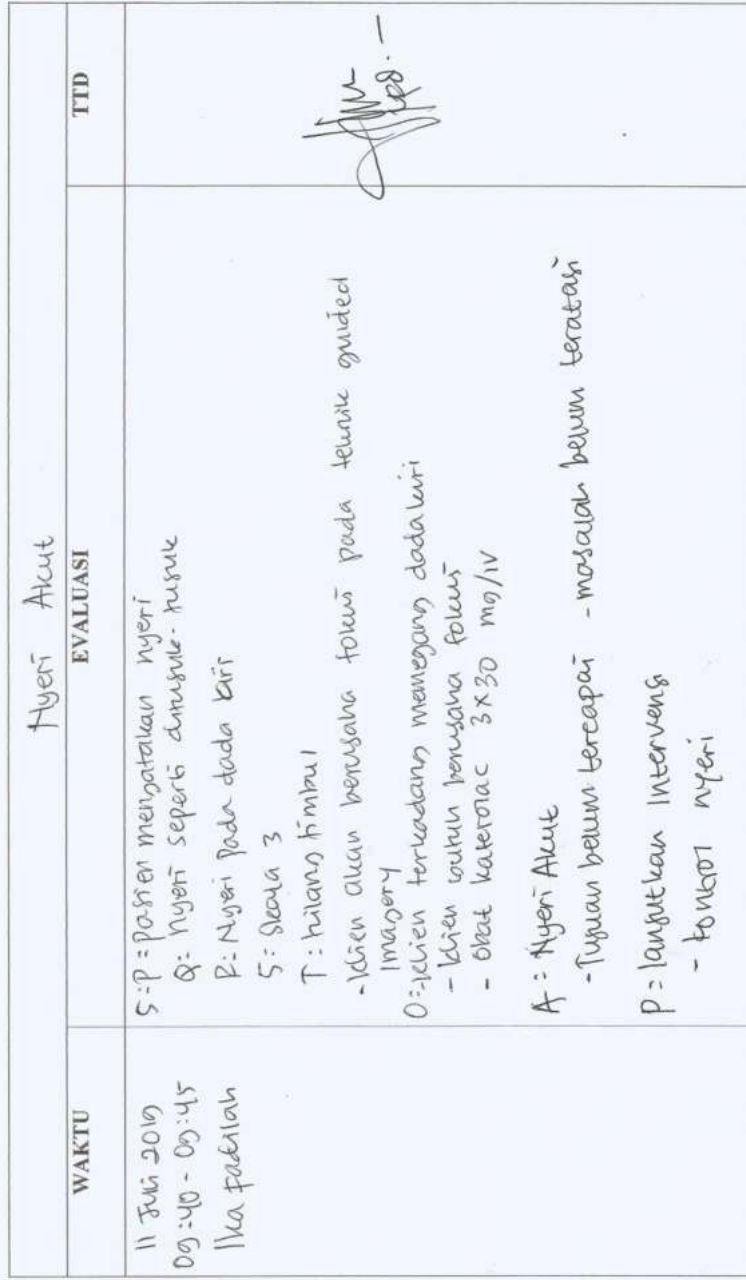 Nyeri Akut
WAKTU
EVALUASI
TTD
11 Juli 2019
09:40 - 09:45
Ika Fadilah
S:P = pasien mengatakan nyeri
Q: nyeri seperti ditusuk-tusuk
R: Nyeri pada dada kiri
S: Skala 3
T: hilang timbul
- klien akan berusaha fokus pada teknik guided
Imagery
O: klien terkadang memegang dada kiri
- klien berusaha fokus
- Obat katerolac 3x30 mg/iv
A = Nyeri Akut
- Tujuan belum tercapai - masalah belum teratasi
P = lanjutkan Intervensi
- kontrol nyeri